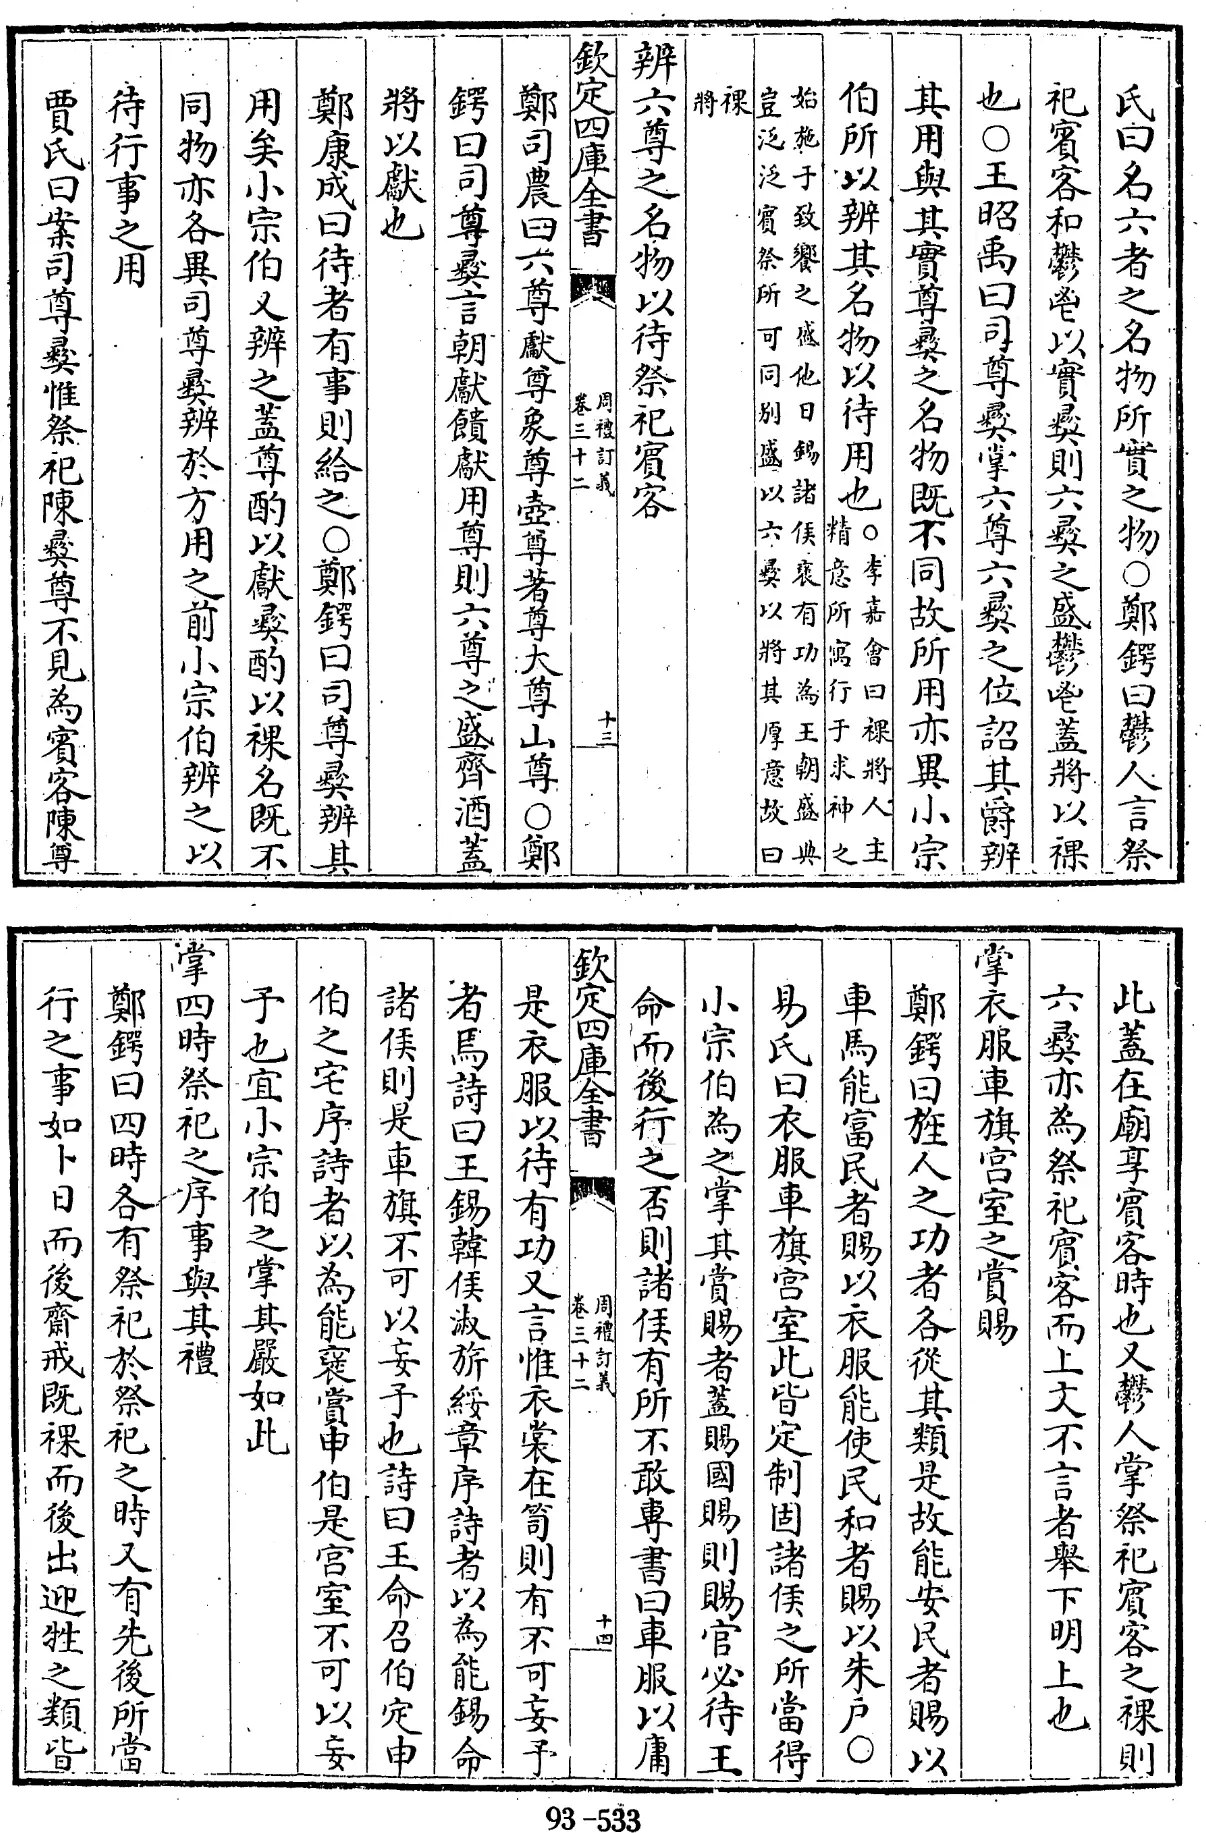 氏曰名六者之名物所實之物○鄭鍔曰鬱人言祭
祀賓客和鬱鬯以實彛則六彛之盛鬱鬯蓋將以祼
也○王昭禹曰司尊彛掌六尊六彛之位詔其爵辨
其用與其實尊彛之名物既不同故所用亦異小宗
伯所以辨其名物以待用也○李嘉會曰祼將人主
精意所寓行于求神之
始施于致饗之盛他日錫諸侯襃有功為王朝盛典
豈泛泛賓祭所可同别盛以六彛以將其厚意故曰
祼
將
辨六尊之名物以待祭祀賓客
欽定四庫全書
周禮訂義
卷三十二
十三
鄭司農曰六尊獻尊象尊壺尊著尊大尊山尊○鄭
鍔曰司尊彛言朝獻饋獻用尊則六尊之盛齊酒蓋
將以獻也
鄭康成曰待者有事則給之○鄭鍔曰司尊彛辨其
用矣小宗伯又辨之蓋尊酌以獻彛酌以祼名既不
同物亦各異司尊彛辨於方用之前小宗伯辨之以
待行事之用
賈氏曰案司尊彛惟祭祀陳彛尊不見為賓客陳尊
此蓋在廟享賓客時也又鬱人掌祭祀賓客之祼則
六彛亦為祭祀賓客而上文不言者舉下明上也
掌衣服車旗宫室之賞賜
鄭鍔曰旌人之功者各從其類是故能安民者賜以
車馬能富民者賜以衣服能使民和者賜以朱户○
易氏曰衣服車旗宫室此皆定制固諸侯之所當得
小宗伯為之掌其賞賜者蓋賜國賜則賜官必待王
命而後行之否則諸侯有所不敢專書曰車服以庸
欽定四庫全書
周禮訂義
卷三十二
十四
是衣服以待有功又言惟衣裳在笥則有不可妄予
者焉詩曰王錫韓侯淑旂綏章序詩者以為能錫命
諸侯則是車旗不可以妄予也詩曰王命召伯定申
伯之宅序詩者以為能襃賞申伯是宫室不可以妄
予也宜小宗伯之掌其嚴如此
掌四時祭祀之序事與其禮
鄭鍔曰四時各有祭祀於祭祀之時又有先後所當
行之事如卜日而後齋戒既祼而後出迎牲之類皆
93-533